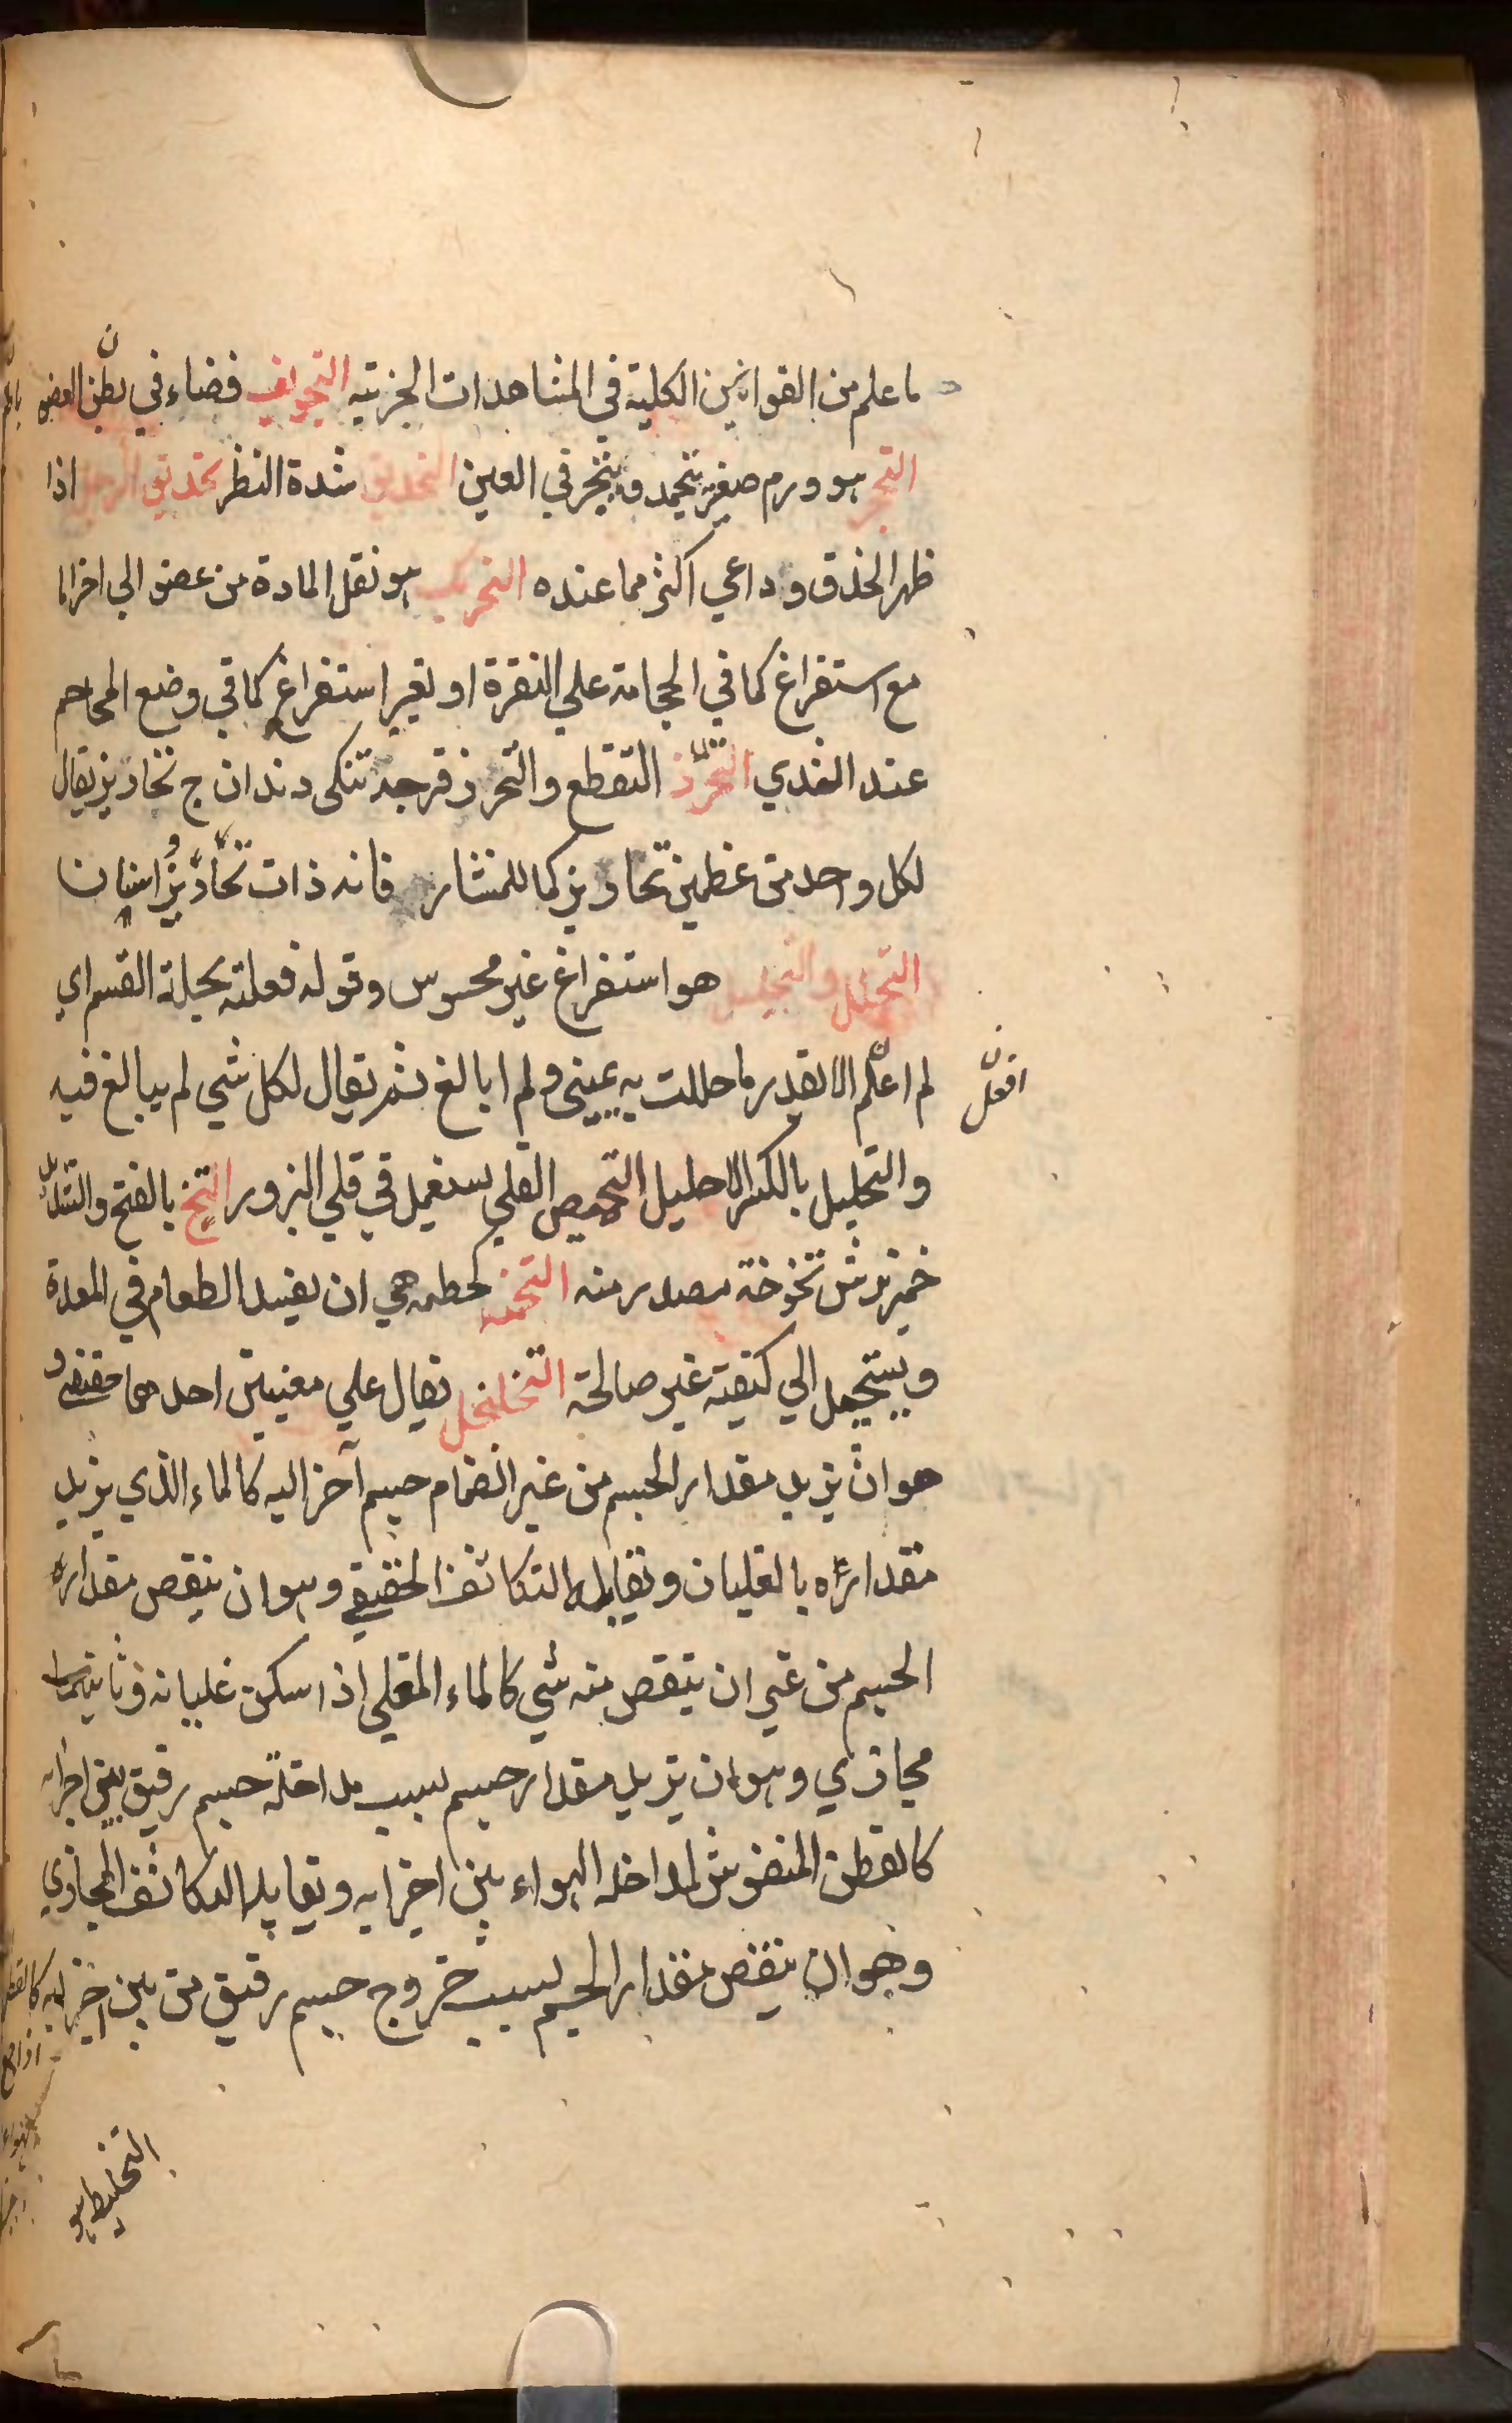 ما علم من القوانين الكلية في المشاهدات الجزئية التجويف فضاء في بطن العضو
التحجر هو ورم صغير يتجمد ويتحجر في العين التحديق شدة النظر تحديق الرجل اذا
ظهر الحذق وداعي اكثر مما عنده التحريك هو نقل المادة من عضو الي اخر اما
مع استفراغ كما في الحجامة علي النقرة او بغير استفراغ كما في وضع المحاجم
عند الثدي التحزز التقطع والتحزز قرجه تنكى دندان ج تحازيز يقال
لكل واحد من عظمين تحازيز كما للمنشار فانه ذات تحازيز اسنان
التحلل والتحليل هو استفراغ غير محسوس وقوله فعلته تحلة القسم اي
لم افعل الا بقدر ما حللت به يميني ولم ابالغ ثم يقال لكل شي لم يبالغ فيه
افعل
والتحليل بالكسر الاحليل التحميص القلي يستعمل في قلي البزور التخ بالفتح والتشديد
خمير ترش تخوخة مصدر منه التخمه كحطمه هي ان يفسد الطعام في المعدة
ويستحيل الي كيفية غير صالحة التخلخل يقال علي معنيين احدهما حقيقي و
هو ان يزيد مقدار الجسم من غير انضمام جسم آخر اليه كالماء الذي يزيد
مقداره بالغليان ويقابله التكاثف الحقيقي وهو ان ينقص مقداره
الجسم من غير ان ينقص منه شي كالماء المغلي اذا سكن غليانه وثانيهما
مجازي وهو ان يزيد مقدار جسم بسبب مداخلة جسم رقيق بين اجزائه
كالقطن المنفوش لمداخلة الهواء بين اجزايه ويقابله التكاثف المجازي
وهو ان ينقص مقدار الجسم بسبب خروج جسم رقيق من بين اجزايه كالقطن
التخليط هو